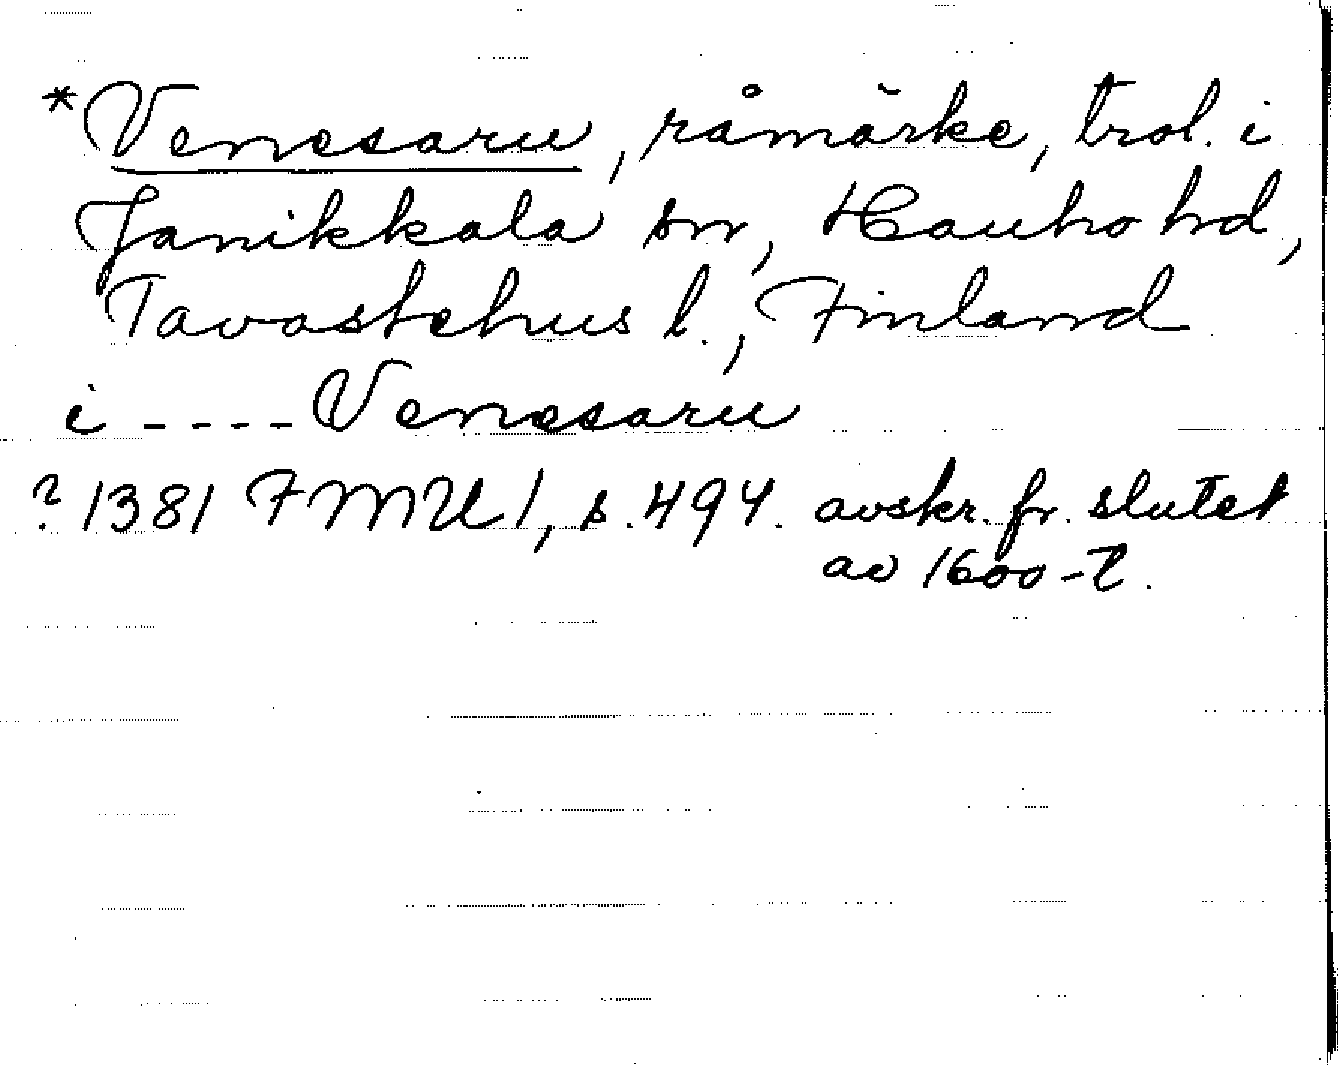 *Venesaru, råmärke, trol. i
Janikkala sn, Hauho hd,
Tavastehus l., Finland
i ---- Venesaru
? 1381 FMU 1, s. 494. avskr. fr. slutet
av 1600-t.